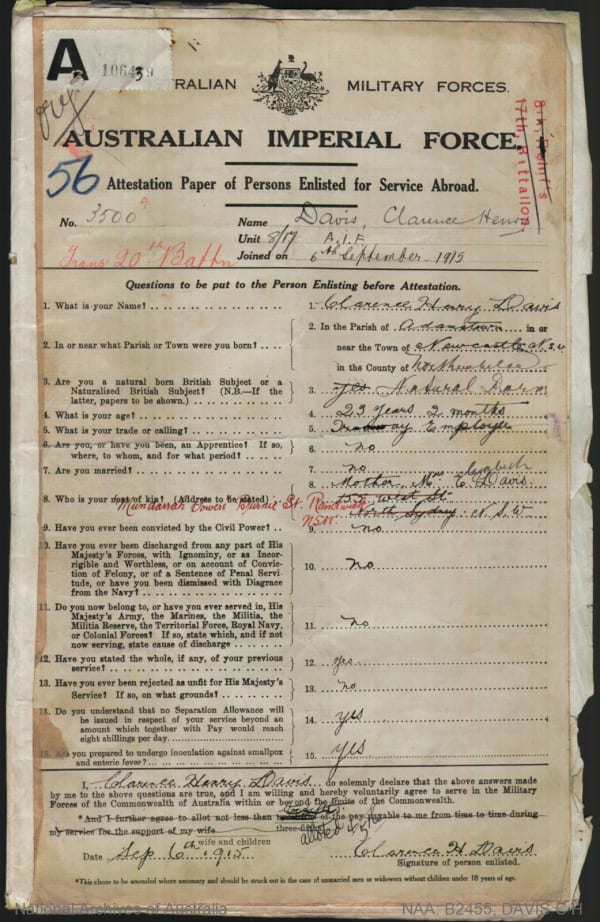 A
1064 9
3
AUSTRALIAN MILITARY FORCES.
AUSTRALIAN IMPERIAL FORCE.
17th Battalion
56
Attestation Paper of Persons Enlisted for Service Abroad.
No. 3500 Name Davis, Clarence Henry
Unit 8/17 A.I.F.
Trans 20th Battn Joined on 6th September 1915
Questions to be put to the Person Enlisting before Attestation.
1. What is your Name? 1. Clarence Henry Davis
2. In or near what Parish or Town were you born? 2. In the Parish of Adamstown in or
near the Town of Newcastle N.S.W
in the County of Northumberland
3. Are you a natural born British Subject or a
Naturalized British Subject? (N.B.—If the
latter, papers to be shown.) 3. yes Natural Born
4. What is your age? 4. 23 years 2 months
5. What is your trade or calling? 5. Tramway Employee
6. Are you, or have you been, an Apprentice? If so,
where, to whom, and for what period? 6. no
7. Are you married? 7. no
8. Who is your next of kin? (Address to be stated) 8. Mother, Mrs E. Davis
155 West St
North Sydney. N.S.W
Burnie St. Randwick
NSW
9. Have you ever been convicted by the Civil Power? 9. no
10. Have you ever been discharged from any part of His
Majesty's Forces, with Ignominy, or as Incor-
rigible and Worthless, or on account of Convic-
tion of Felony, or of a Sentence of Penal Servi-
tude, or have you been dismissed with Disgrace
from the Navy? 10. no
11. Do you now belong to, or have you ever served in, His
Majesty's Army, the Marines, the Militia, the
Militia Reserve, the Territorial Force, Royal Navy,
or Colonial Forces? If so, state which, and if not
now serving, state cause of discharge 11. no
12. Have you stated the whole, if any, of your previous
service? 12. yes
13. Have you ever been rejected as unfit for His Majesty's
Service? If so, on what grounds? 13. no
14. Do you understand that no Separation Allowance will
be issued in respect of your service beyond an
amount which together with Pay would reach
eight shillings per day. 14. yes
15. Are you prepared to undergo inoculation against smallpox
and enteric fever? 15. yes
I, Clarence Henry Davis do solemnly declare that the above answers made
by me to the above questions are true, and I am willing and hereby voluntarily agree to serve in the Military
Forces of the Commonwealth of Australia within or beyond the limits of the Commonwealth.
*And I further agree to allot not less than of the pay payable to me from time to time during
my service for the support of my wife
wife and children
Date Sep 6th 1915 Clarence H Davis
Signature of person enlisted.
*This clause to be amended where necessary and should be struck out in the case of unmarried men or widowers without children under 18 years of age.
National Archives of Australia NAA: B2455, DAVIS C H